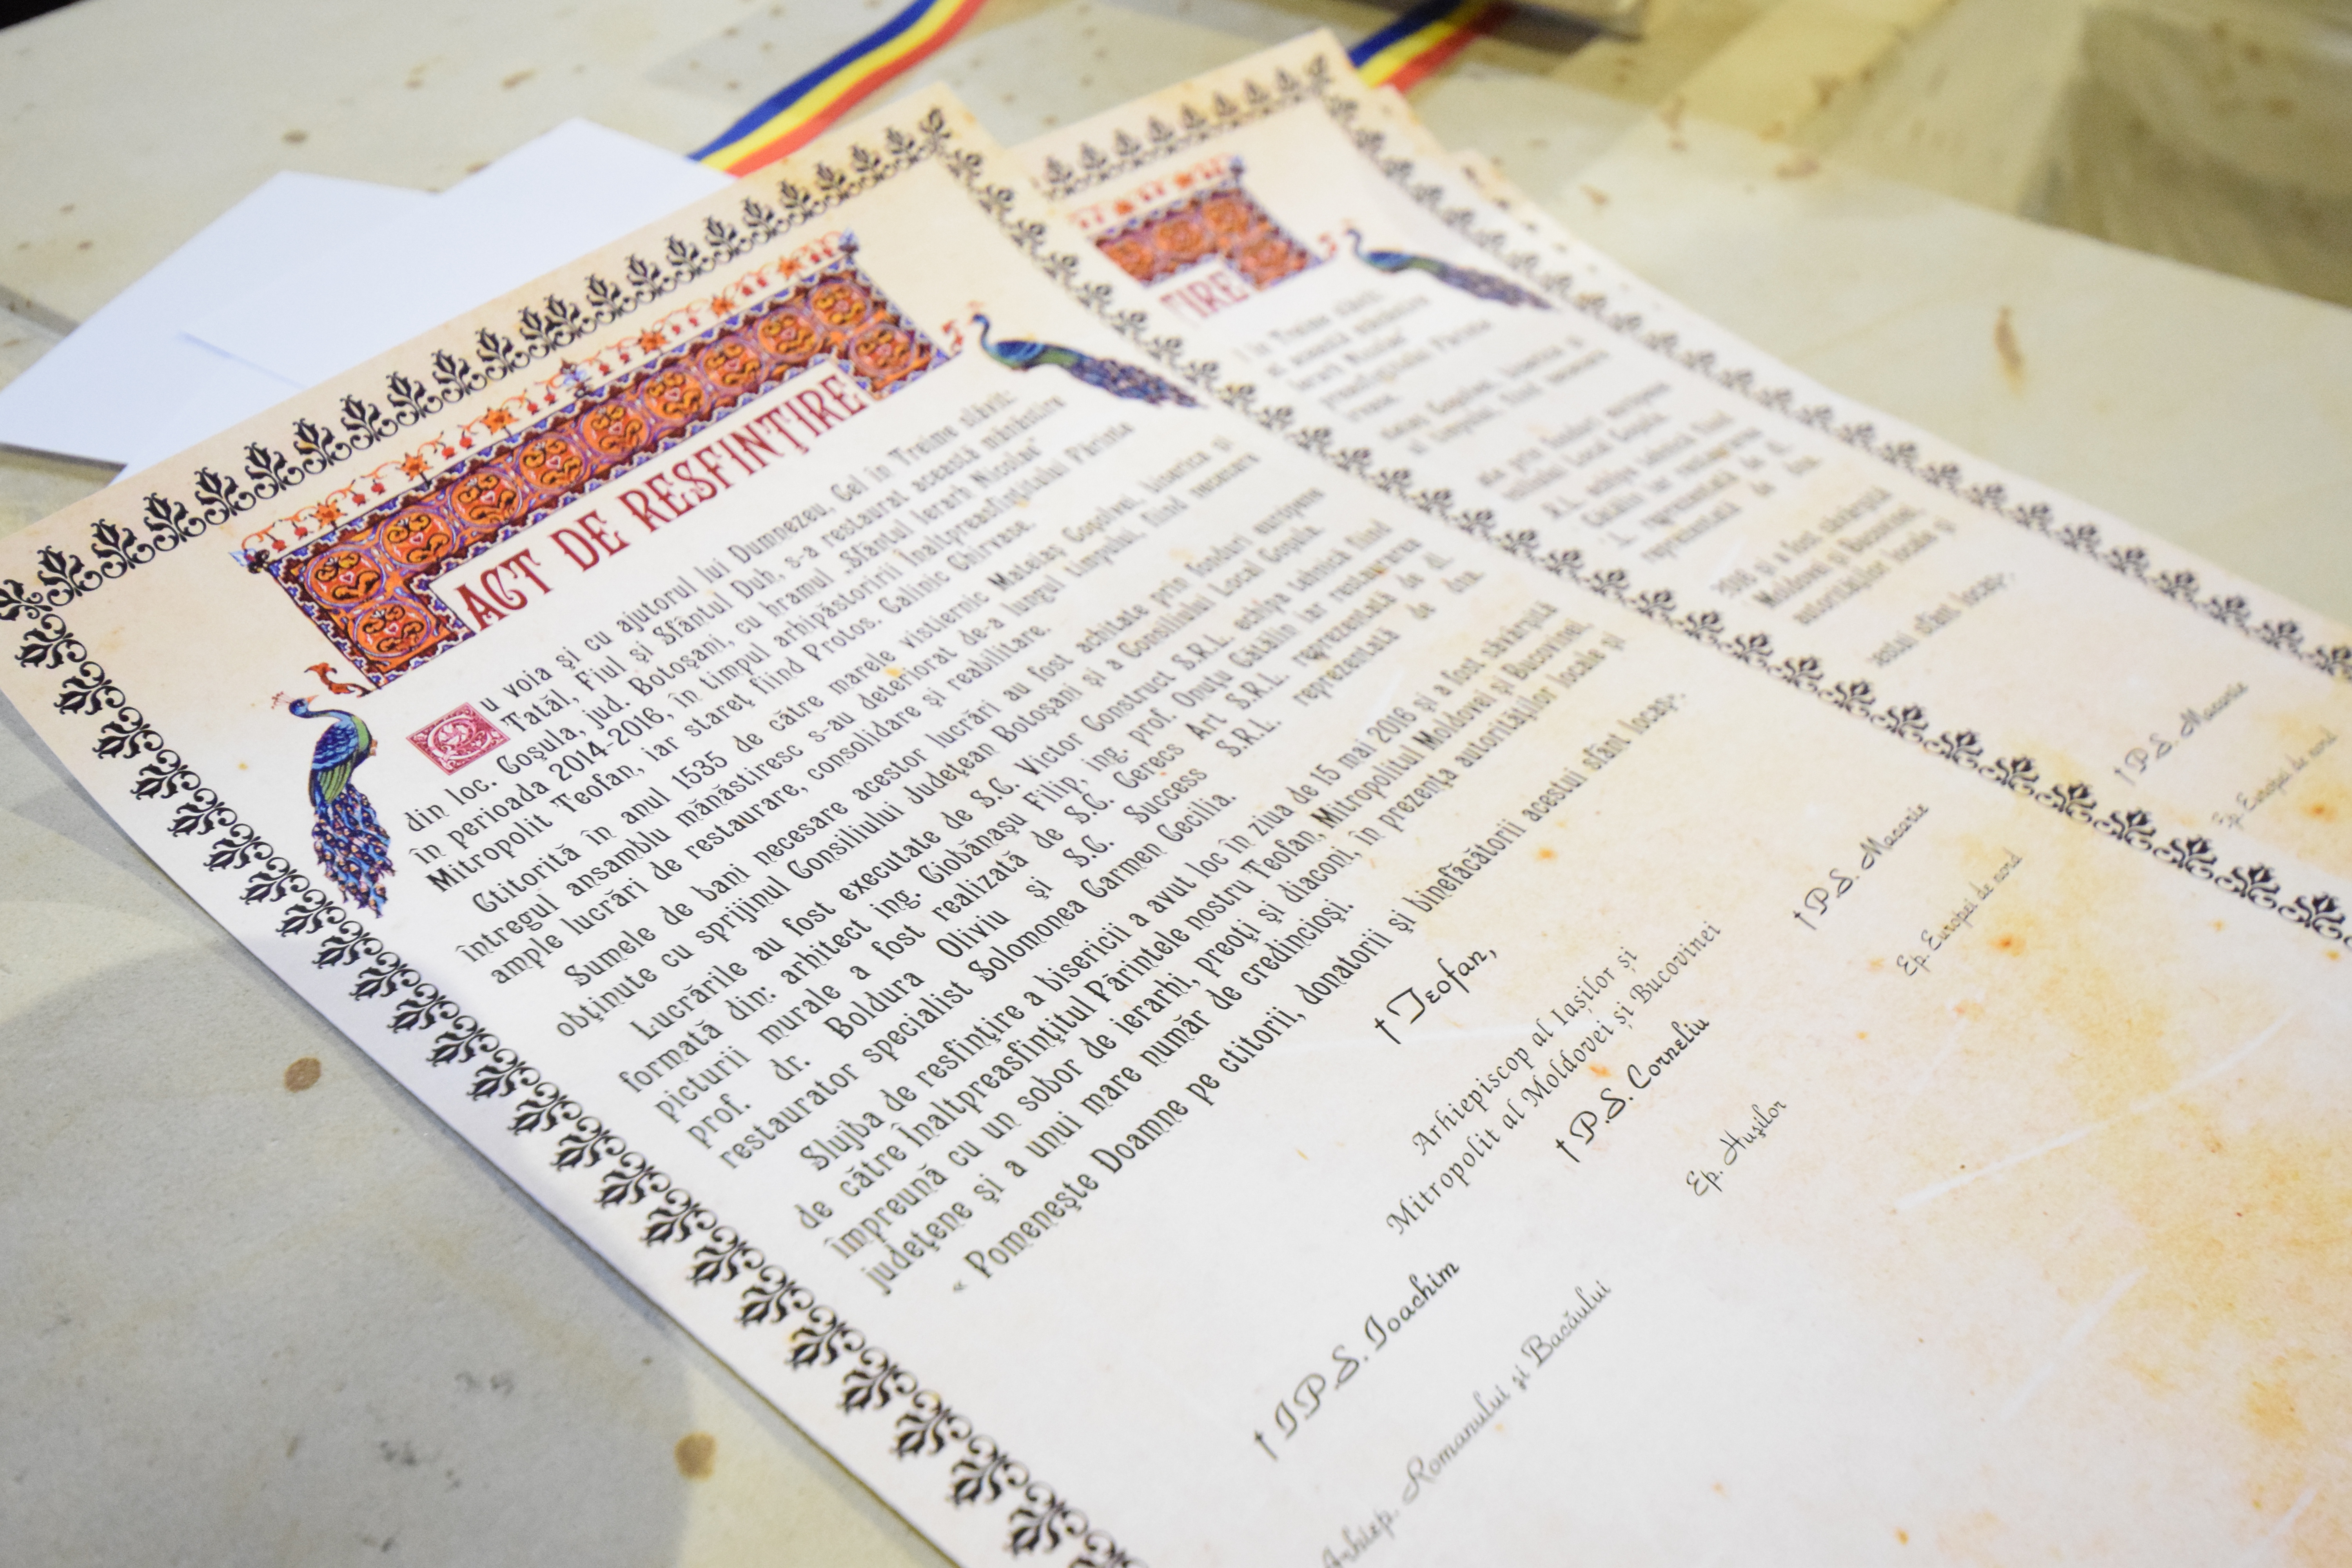 ACT DE RESFINȚIRE
Cu voia și cu ajutorul lui Dumnezeu, Cel în Treime slăvit:
Tatăl, Fiul și Sfântul Duh, s-a restaurat această mănăstire
din loc. Coșula, jud. Botoșani, cu hramul „Sfântul Ierarh Nicolae”
în perioada 2014-2016, în timpul arhipăstoririi Înaltpreasfințitului Părinte
Mitropolit Teofan, iar stareț fiind Protos. Calinic Chirvase.
Ctitorită în anul 1535 de către marele vistiernic Mateiaș Coșolvei, biserica și
întregul ansamblu mănăstiresc s-au deteriorat de-a lungul timpului, fiind necesare
ample lucrări de restaurare, consolidare și reabilitare.
Sumele de bani necesare acestor lucrări au fost achitate prin fonduri europene
obținute cu sprijinul Consiliului Județean Botoșani și a Consiliului Local Coșula.
Lucrările au fost executate de S.C. Victor Construct S.R.L. echipa tehnică fiind
formată din: arhitect ing. Ciobănașu Filip, ing. prof. Onuțu Cătălin iar restaurarea
picturii murale a fost realizată de S.C. Cerecs Art S.R.L. reprezentată de d.
prof. dr. Boldura Oliviu și S.C. Success S.R.L. reprezentată de dna.
restaurator specialist Solomonea Carmen Cecilia.
Slujba de resfințire a bisericii a avut loc în ziua de 15 mai 2016 și a fost săvârșită
de către Înaltpreasfințitul Părintele nostru Teofan, Mitropolitul Moldovei și Bucovinei,
împreună cu un sobor de ierarhi, preoți și diaconi, în prezența autorităților locale și
județene și a unui mare număr de credincioși.
« Pomenește Doamne pe ctitorii, donatorii și binefăcătorii acestui sfânt locaș».
† Teofan,
Arhiepiscop al Iașilor și
Mitropolit al Moldovei și Bucovinei
† I.P.S. Ioachim
Arhiep. Romanului și Bacăului
† P.S. Corneliu
Ep. Hușilor
† P.S. Macarie
Ep. Europei de nord
ȚIRE
în Treime slăvit:
această mănăstire
Ierarh Nicolae”
Părinte
Coșolvei, biserica și
timpului, fiind necesare
prin fonduri europene
Consiliului Local Coșula.
S.R.L. echipa tehnică fiind
Cătălin iar restaurarea
reprezentată de d.
reprezentată de dna.
2016 și a fost săvârșită
Moldovei și Bucovinei,
autorităților locale și
acestui sfânt locaș».
† P.S. Macarie
Ep. Europei de nord